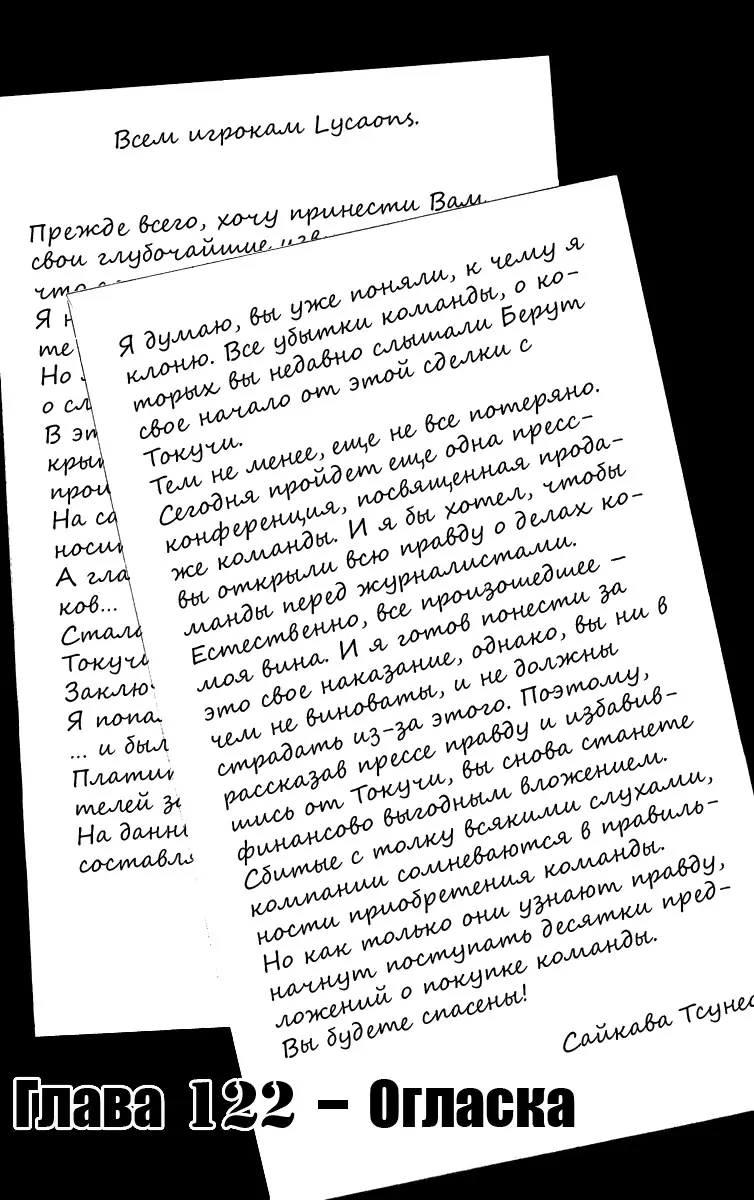 Всем игрокам Lycaons.
Прежде всего, хочу принести Вам
свои глубочайшие
что
Я
те
Но
о
В
На
А
ков...
Я
... и был
телей
На
Я думаю, вы уже поняли, к чему я
клоню. Все убытки команды, о ко-
торых вы недавно слышали Берут
свое начало от этой сделки с
Токучи.
Тем не менее, еще не все потеряно.
Сегодня пройдет еще одна пресс-
конференция, посвященная прода-
же команды. И я бы хотел, чтобы
вы открыли всю правду о делах ко-
манды перед журналистами.
Естественно, все произошедшее –
моя вина. И я готов понести за
это свое наказание, однако, вы ни в
чем не виноваты, и не должны
страдать из-за этого. Поэтому,
рассказав прессе правду и избавив-
шись от Токучи, вы снова станете
финансово выгодным вложением.
Сбитые с толку всякими слухами,
компании сомневаются в правиль-
ности приобретения команды.
Но как только они узнают правду,
начнут поступать десятки пред-
ложений о покупке команды.
Вы будете спасены!
Сайкава
Глава 122 – Огласка